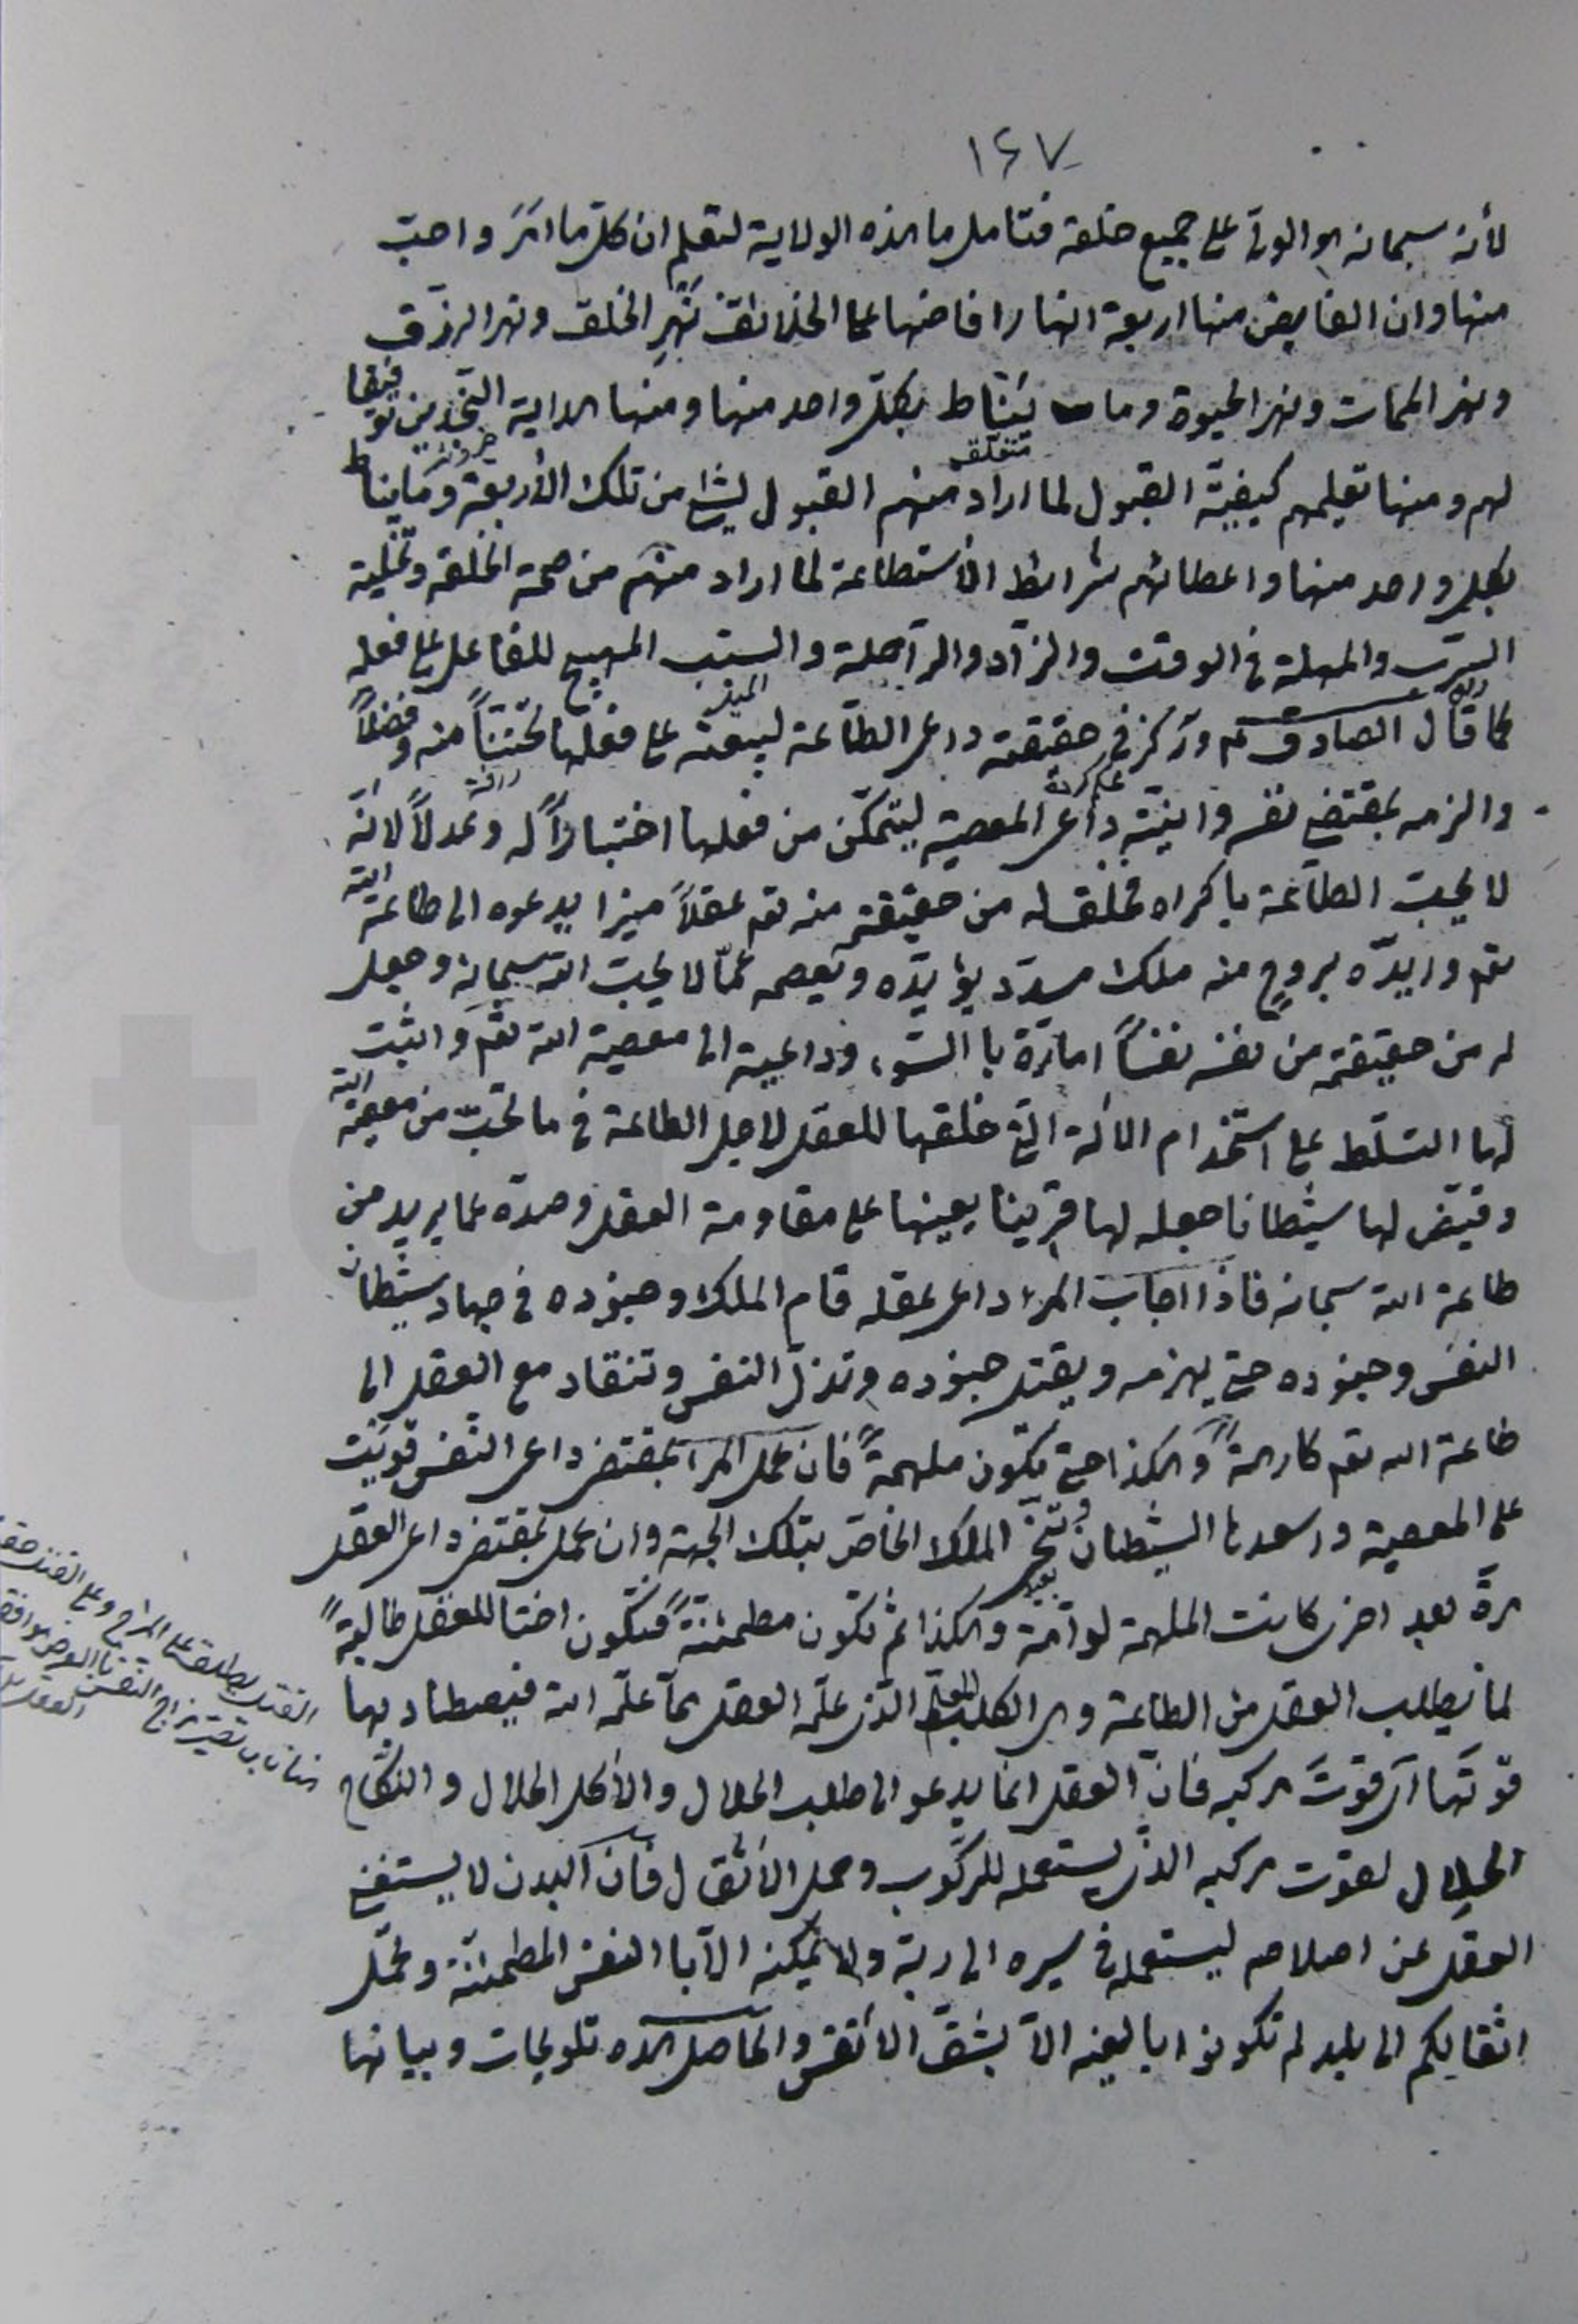 ١٤٧
لأنه سبحانه هو الولی علی جمیع خلقه فتامل ما هذه الولایة لتعلم ان کل ما امر واحب
منها وان الفایض منها اربعة انهار افاضها علی الخلائق نهر الخلق ونهر الرزق
ونهر الممات ونهر الحیوة وما یناط بکل واحد منها ومنها هدایة النجدین توفیقا
لهم ومنها تعلیمهم کیفیة القبول لما اراد منهم القبول لشئ من تلک الأربعة وما یناط
متعلق
بکل واحد منها واعطائهم شرایط الأستطاعة لما اراد منهم من صحة الخلقة وتخلیة
السرب والمهلة فی الوقت والزاد والراحلة والسبب المهیج للفاعل علی فعله
کما قال الصادق ع ورکز فی حقیقته داعی الطاعة لیبعثه علی فعلها تحننا منه وفضلا
والزمه بمقتضی نفسه وانیته داعی المعصیة لیتمکن من فعلها اختبارا له وعدلا لانه
لا یحب الطاعة باکراه فخلق له من حقیقته منه تعم عقلا میزا یدعوه الی طاعة الله
تعم وایده بروح منه ملک مسدد یؤیده ویعصمه عما لا یحب الله سبحانه وجعل
له من حقیقته من نفسه نفسا امارة با السوء وداعیة الی معصیة الله تعم واثبت
لها التسلط علی استخدام الألة التی خلقها للعقل لاجل الطاعة فی ما تحب من معصیة الله
وقیض لها شیطانا جعله لها قرینا یعینها علی مقاومة العقل وصده عما یرید من
طاعة الله سبحانه فاذا اجاب المرء داعی عقله قام الملک وجنوده فی جهاد شیطان
النفس وجنوده حتی یهزمه ویقتل جنوده وتذل النفس وتنقاد مع العقل الی
طاعة الله تعم کارهة وهکذا حتی تکون ملهمة فان عمل المرء بمقتضی داعی النفس قویت
علی المعصیة واسعدها الشیطان وتنحی الملک الخاص بتلک الجهة وان عمل بمقتضی داعی العقل
مرة بعد اخری کانت الملهمة لوامة وهکذا ثم تکون مطمئنة فتکون اختا للعقل طالبة
لما یطلب العقل من الطاعة وهی الکلب المعلم الذی علمه العقل مما علمه الله فیصطاد بها
قوتها ای قوت مرکبه فان العقل انما یدعو الی طلب الحلال والأکل الحلال والنکاح
الحلال لقوت مرکبه الذی یستعمله للرکوب وحمل الأثقال فان البدن لا یستغنی
العقل عن اصلاحه لیستعمله فی سیره الی ربه ولا یمکنه الا با النفس المطمئنة وتحمل
اثقالکم الی بلد لم تکونوا بالغیه الا بشق الأنفس والحاصل هذه تلویحات وبیانها